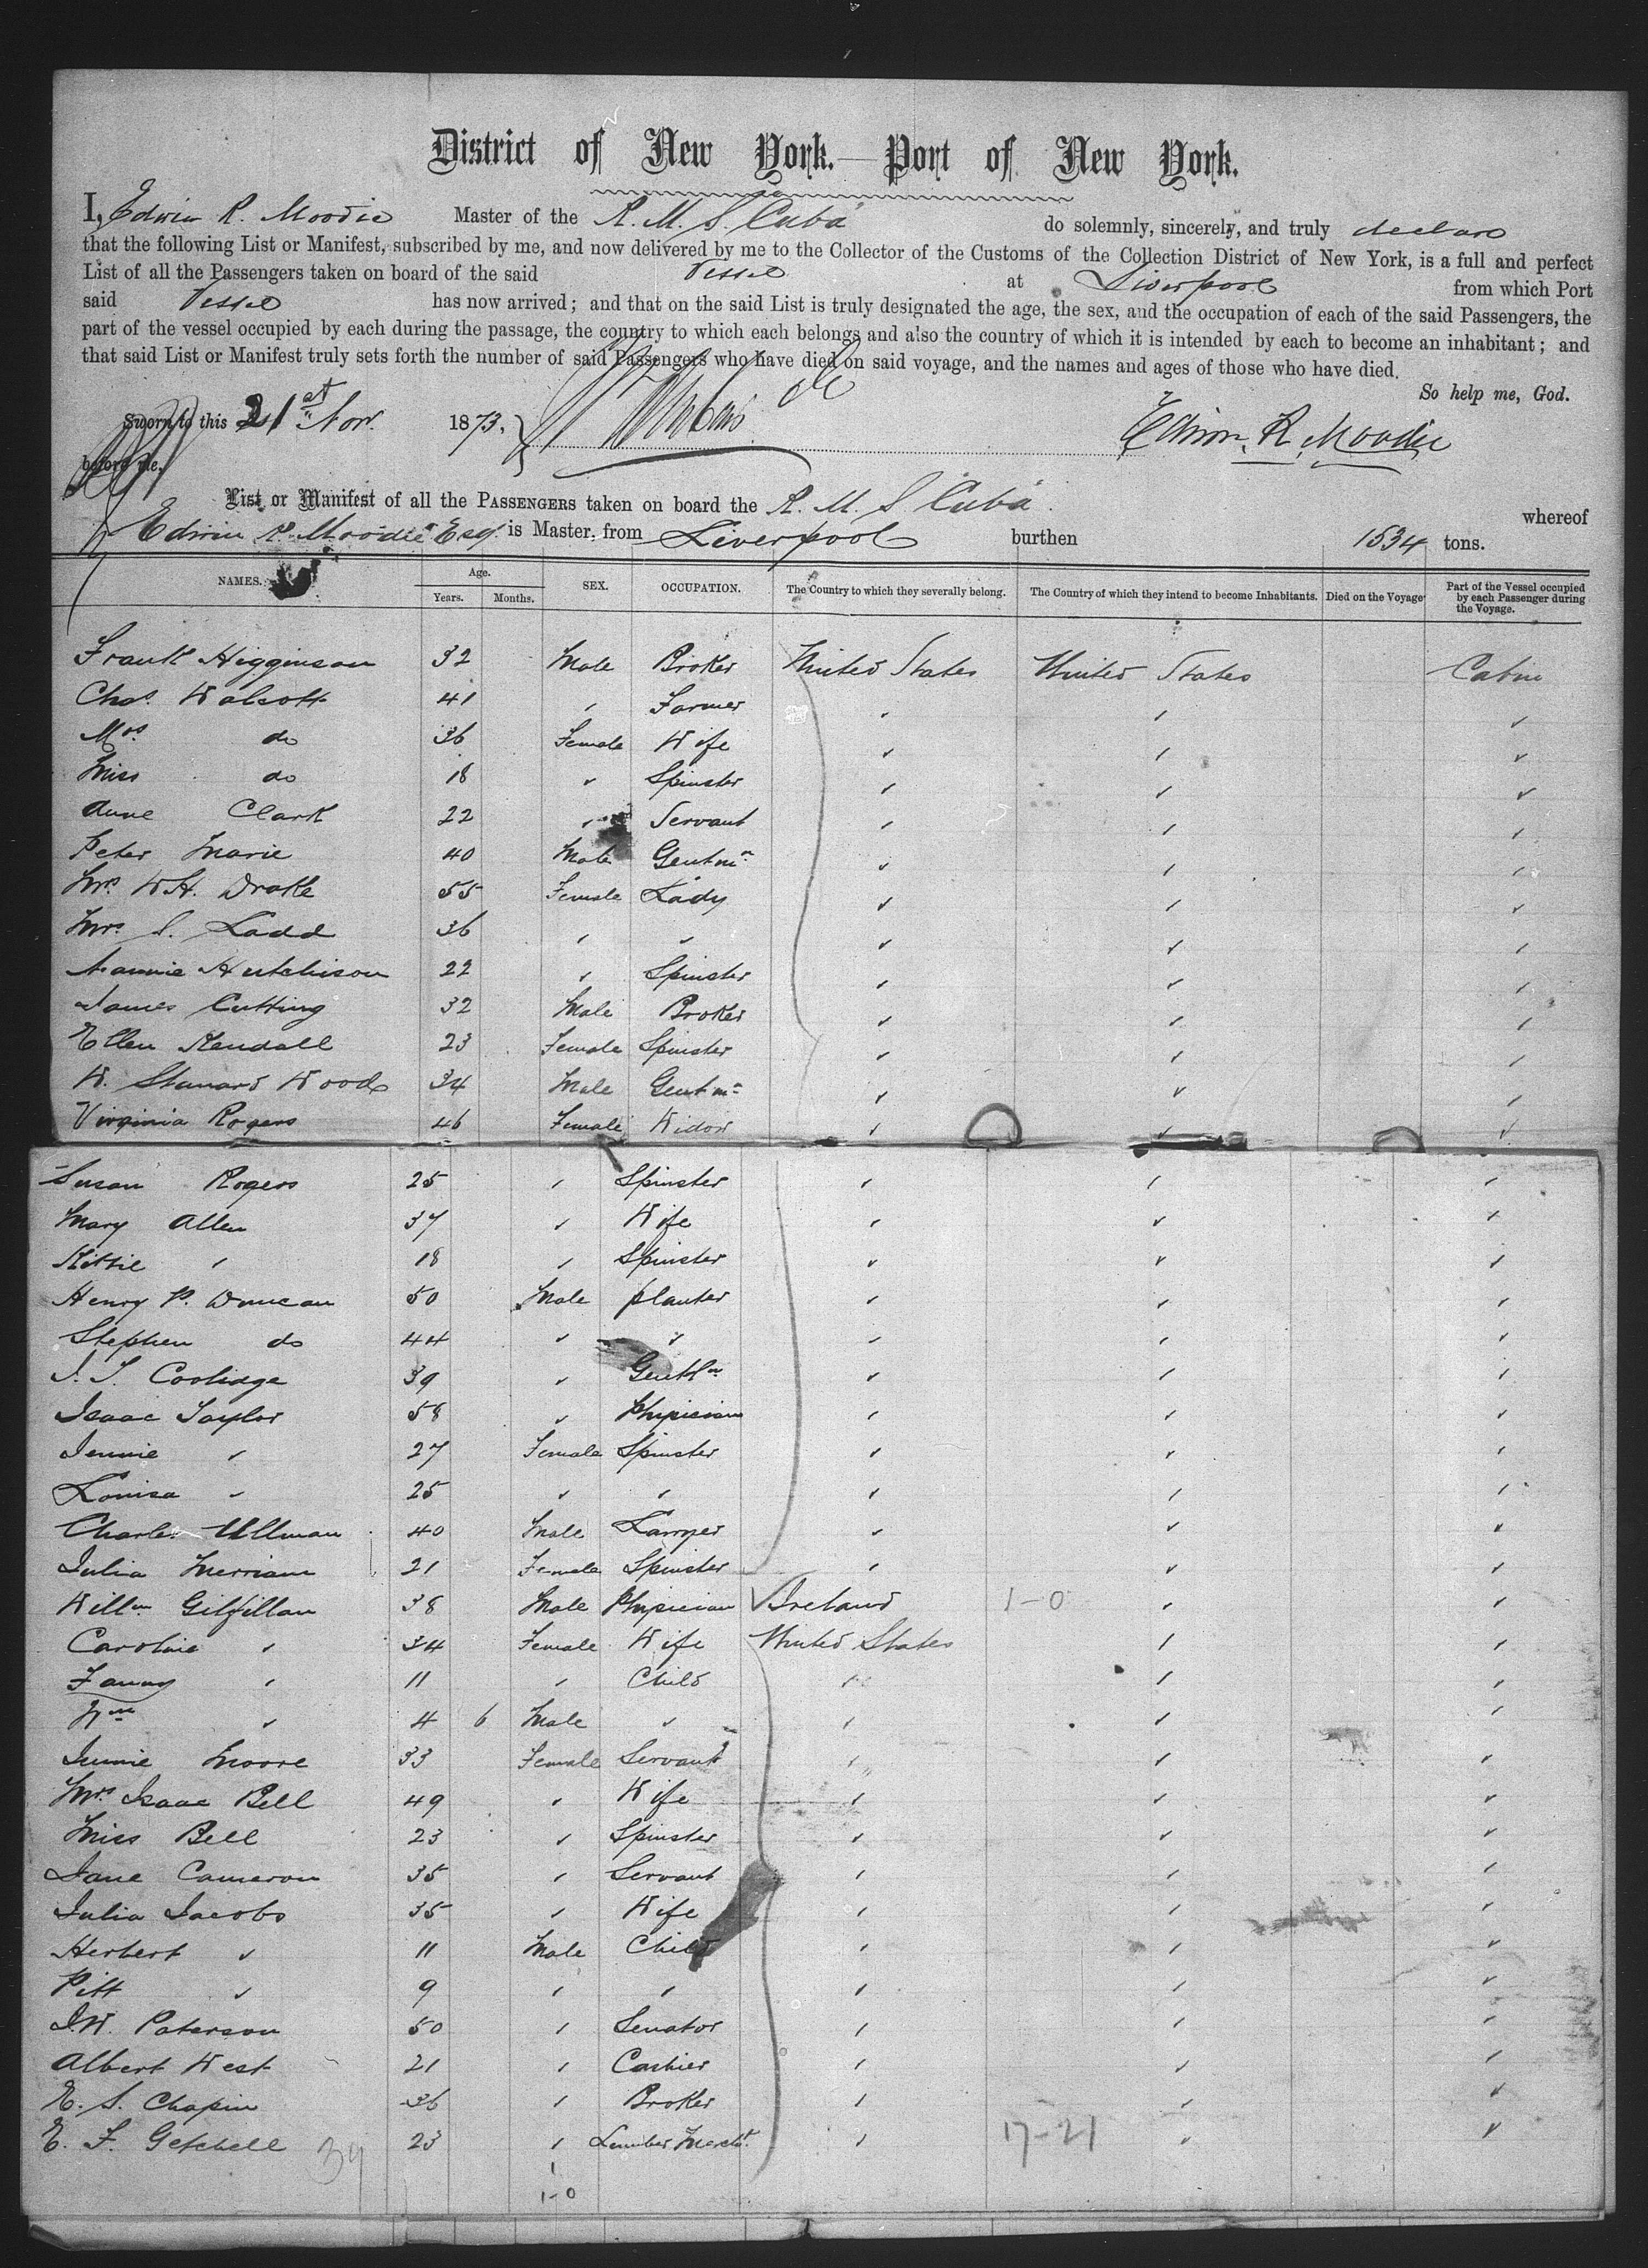 District of New York.—Port of New York.
I, Edwin R. Moodie Master of the R. M. S. Cuba do solemnly, sincerely, and truly declare
that the following List or Manifest, subscribed by me, and now delivered by me to the Collector of the Customs of the Collection District of New York, is a full and perfect
List of all the Passengers taken on board of the said Vessel at Liverpool from which Port
said Vessel has now arrived; and that on the said List is truly designated the age, the sex, and the occupation of each of the said Passengers, the
part of the vessel occupied by each during the passage, the country to which each belongs and also the country of which it is intended by each to become an inhabitant; and
that said List or Manifest truly sets forth the number of said Passengers who have died on said voyage, and the names and ages of those who have died.
So help me, God.
Sworn to this 21st Nov. 1873, Edwin R. Moodie
before me,
List or Manifest of all the PASSENGERS taken on board the R. M. S Cuba whereof
Edwin R. Moodie Esq. is Master, from Liverpool burthen 1534 tons.
NAMES. Age. Years. Months. SEX. OCCUPATION. The Country to which they severally belong. The Country of which they intend to become Inhabitants. Died on the Voyage Part of the Vessel occupied by each Passenger during the Voyage.
Frank Higginson 32 Male Broker United States United States Cabin
Chas. Walcott 41 " Farmer " " "
Mrs do 36 Female Wife " " "
Miss do 18 " Spinster " " "
Anne Clark 22 " Servant " " "
Peter Marie 40 Male Gentmn " " "
Mrs. W.H. Drake 55 Female Lady " " "
Mrs. S. Ladd 36 " " " " "
Nannie Hutchison 22 " Spinster " " "
James Cutting 32 Male Broker " " "
Ellen Kendall 23 Female Spinster " " "
W. Stewart Woods 34 Male Gentmn " " "
Virginia Rogers 46 Female Widow " " "
Susan Rogers 25 " Spinster " " "
Mary Allen 37 " Wife " " "
Kittie " 18 " Spinster " " "
Henry P. Duncan 50 Male planter " " "
Stephen do 44 " " " " "
J. T. Coolidge 39 " Gentln " " "
Isaac Taylor 58 " Physician " " "
Jennie " 27 Female Spinster " " "
Louisa " 25 " " " " "
Charles Ullman 40 Male Lawyer " " "
Julia Merriam 21 Female Spinster " " "
Willm Gilfillan 38 Male Physician Ireland 1-0 " "
Caroline " 34 Female Wife United States " "
Fanny " 11 " Child " " "
Wm " 4 6 Male " " " "
Jennie Moore 33 Female Servant " " "
Mrs Isaac Bell 49 " Wife " " "
Miss Bell 23 " Spinster " " "
Jane Cameron 35 " Servant " " "
Julia Jacobs 35 " Wife " " "
Herbert " 11 Male Child " " "
Pitt " 9 " " " " "
J.W. Paterson 50 " Senator " " "
Albert West 21 " Cashier " " "
E. S. Chapin 36 " Broker " " "
E. F. Getchell 39 23 " Lumber Mercht. " 17-21 " "
1-0